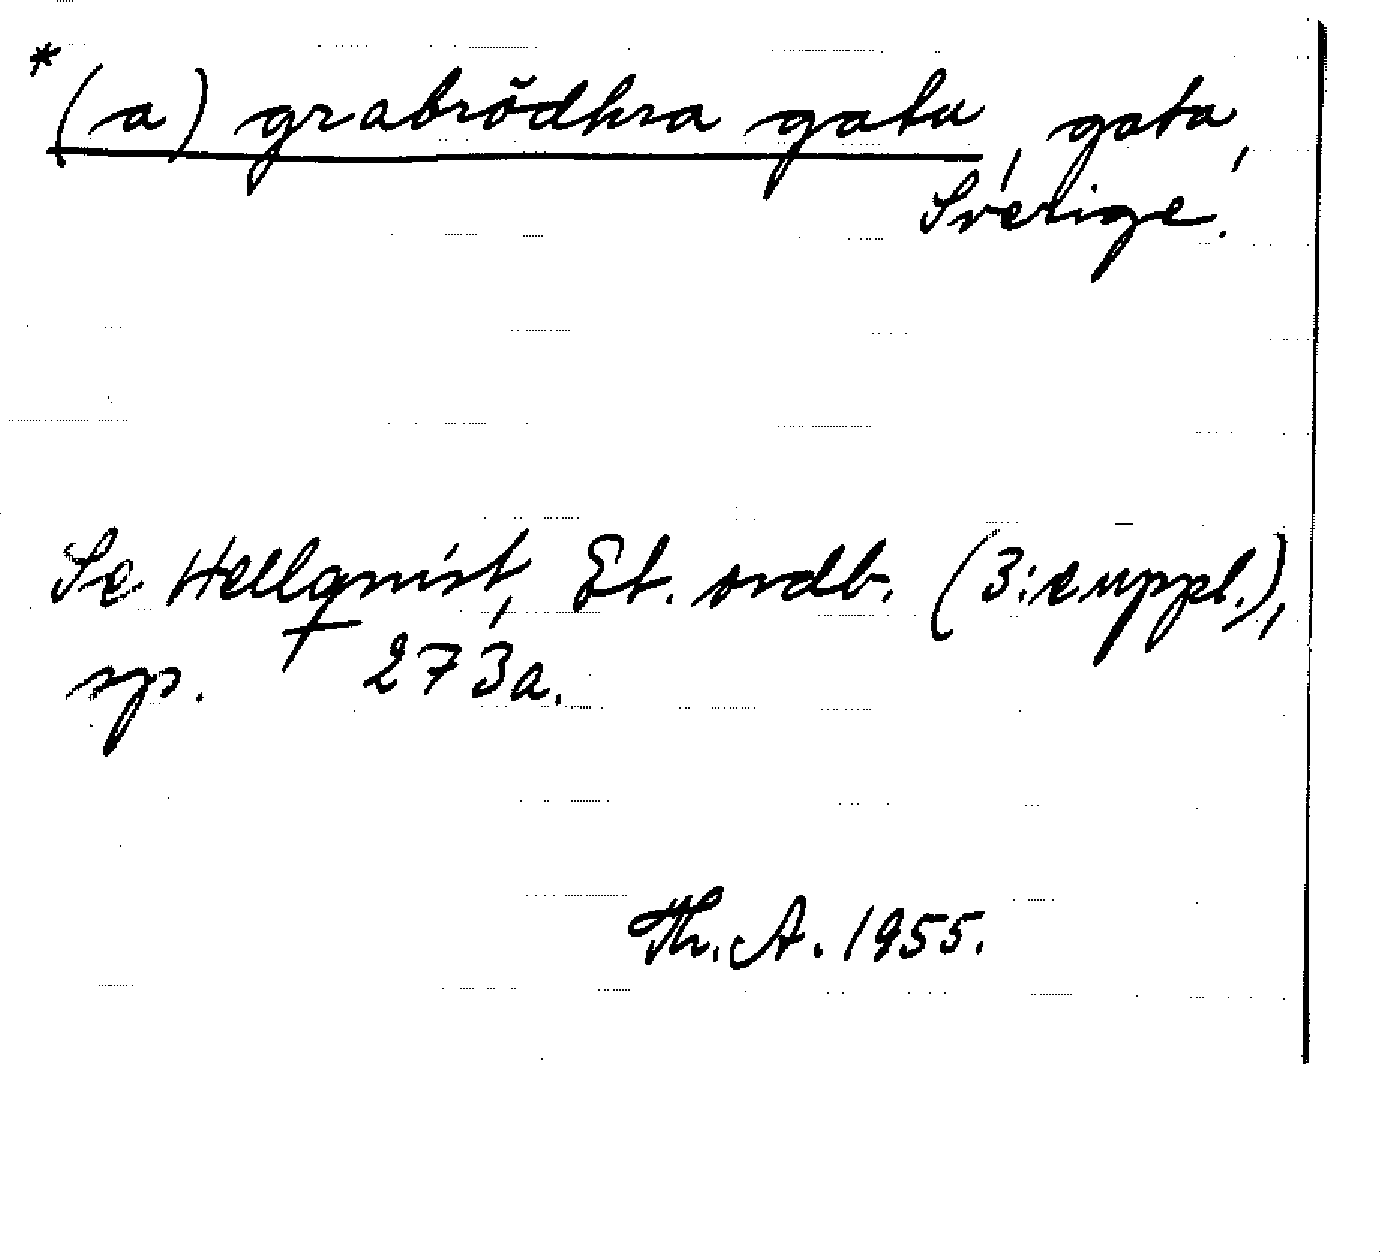 *(a) grabrödhra gatu, gata,
Sverige.
Se Hellqvist, Et. ordb. (3:e uppl.),
sp. 273a.
Th. A. 1955.